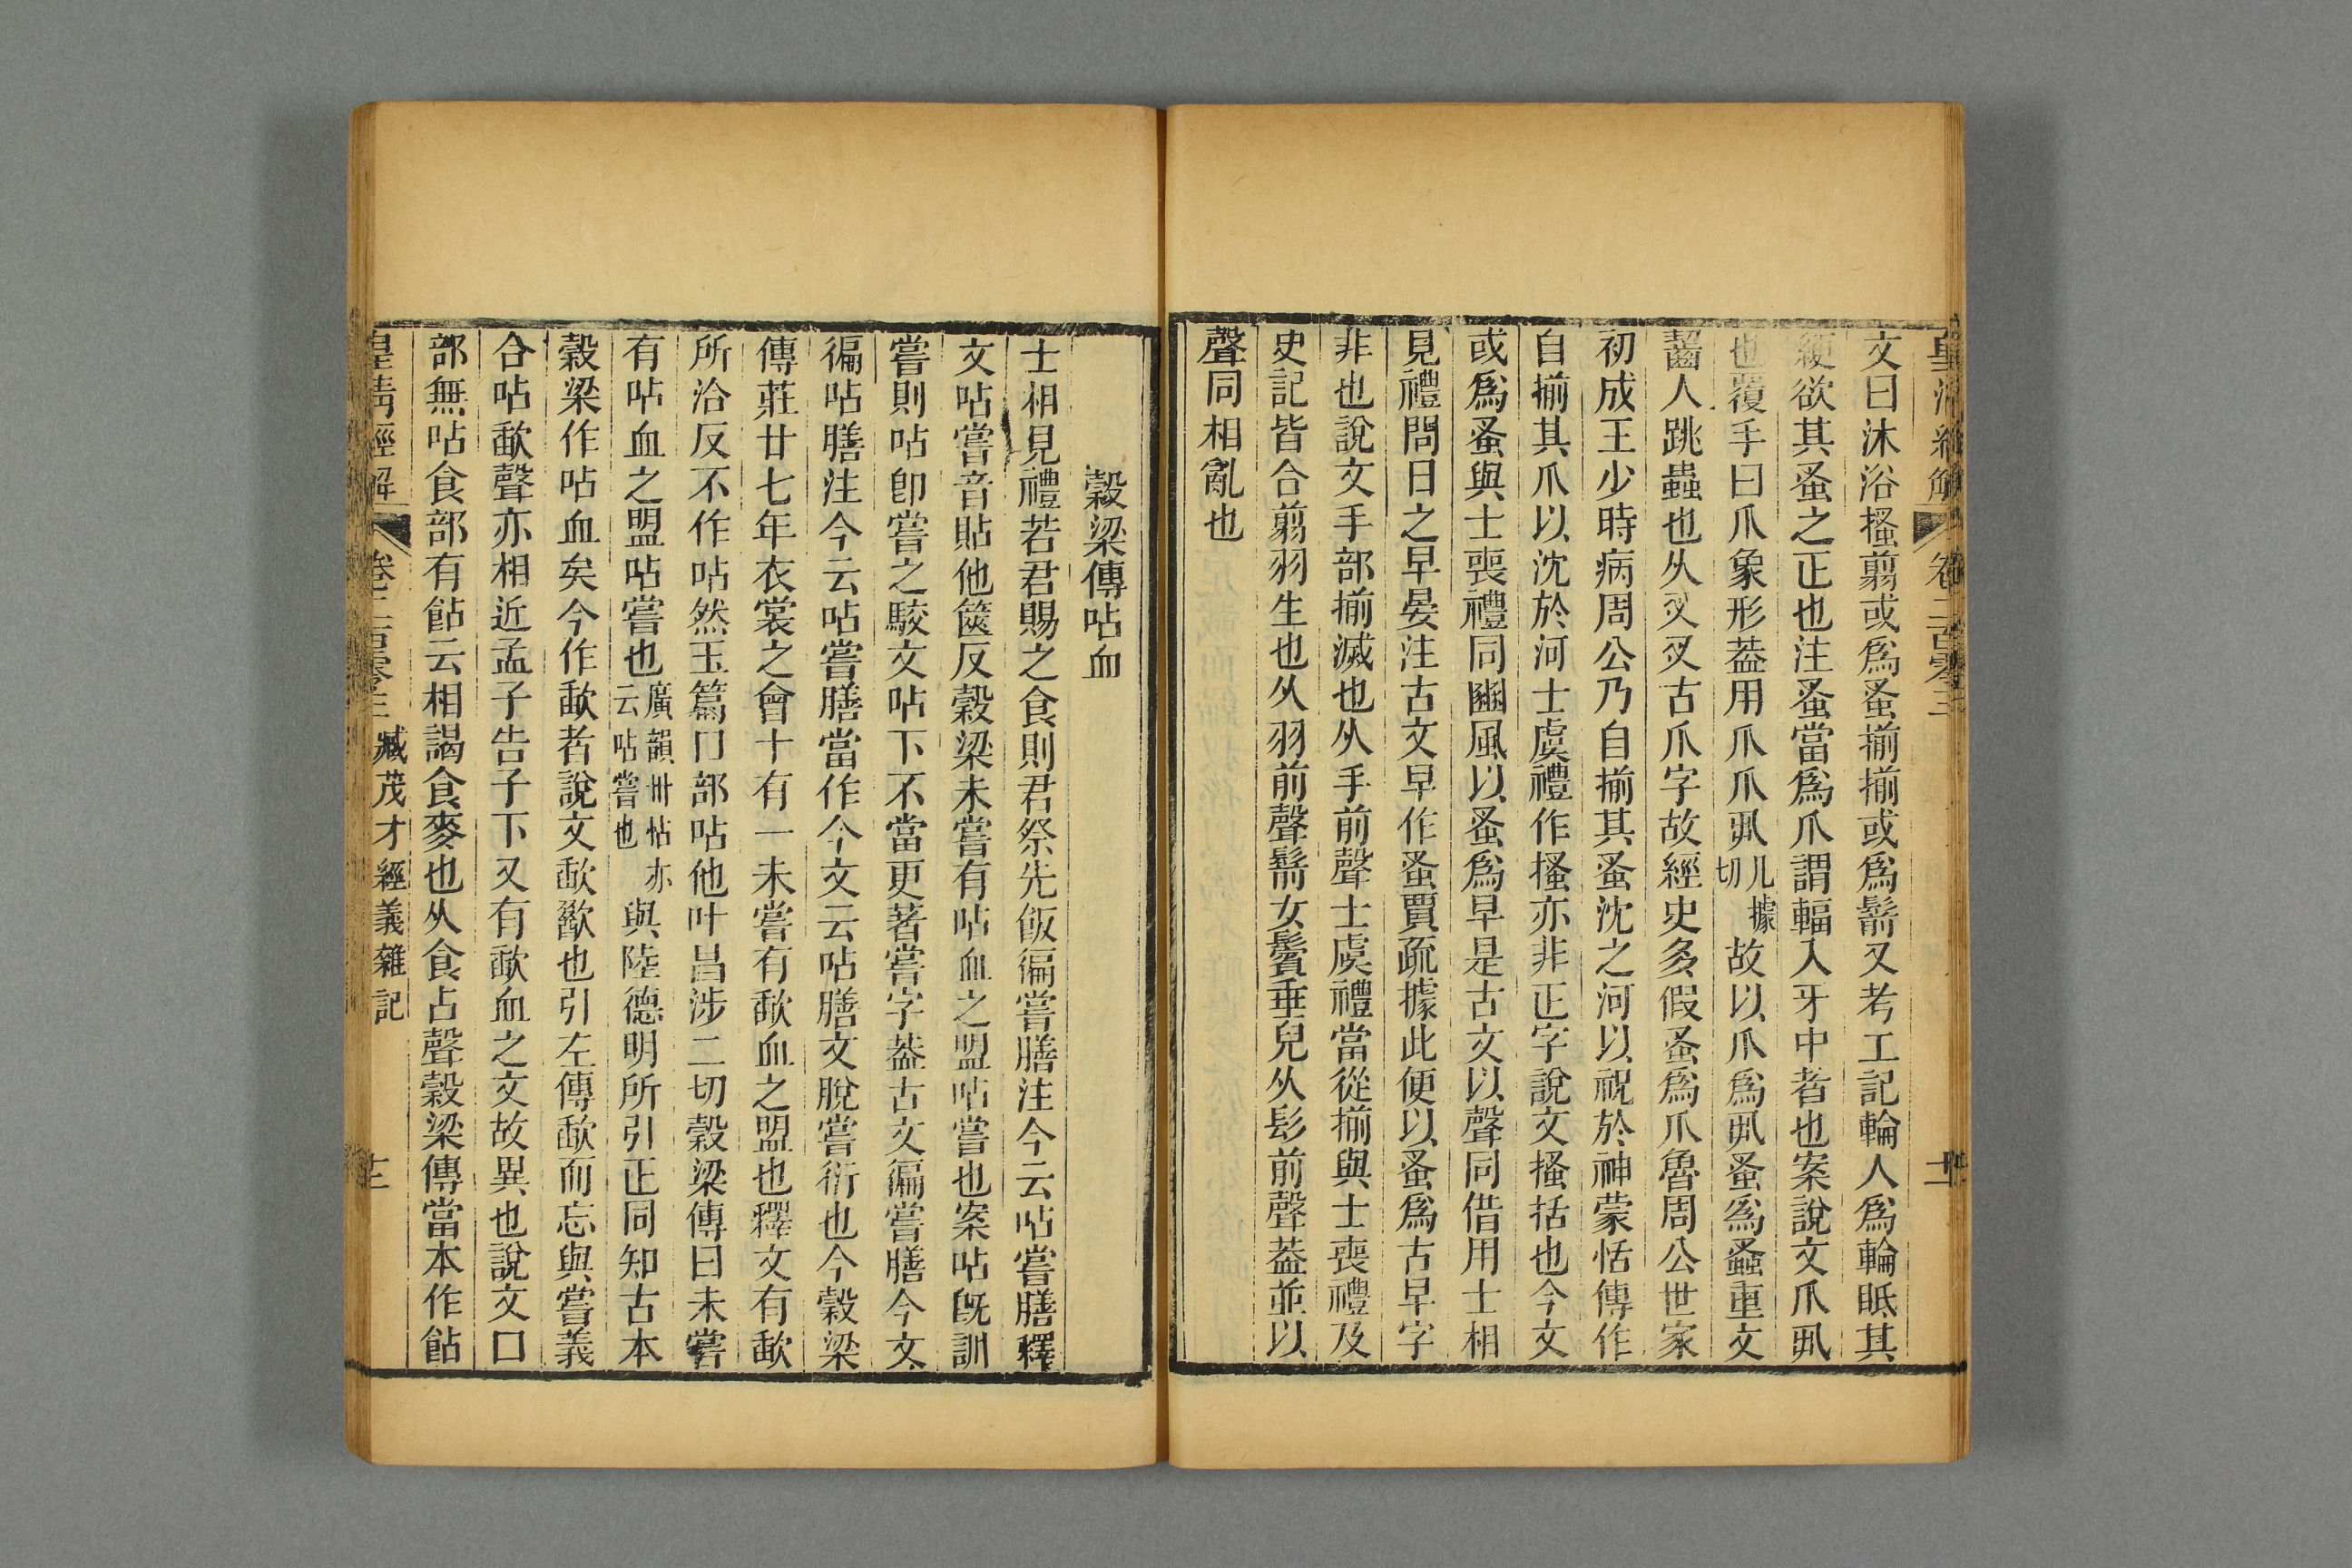 文曰沐浴搔翦或爲蚤揃揃或爲鬋又考工記輪人爲輪眂其
綆欲其蚤之正也注蚤當爲爪謂輻入牙中者也案說文爪丮
也覆手曰爪象形蓋用爪爪丮几據切故以爪爲丮蚤爲䖣重文
齧人跳蟲也从㕚㕚古爪字故經史多假蚤爲爪魯周公世家
初成王少時病周公乃自揃其蚤沈之河以祝於神蒙恬傳作
自揃其爪以沈於河士虞禮作搔亦非正字說文搔括也今文
或爲蚤與士喪禮同豳風以蚤爲早是古文以聲同借用士相
見禮問日之早晏注古文早作蚤賈疏據此便以蚤爲古早字
非也說文手部揃滅也从手前聲士虞禮當從揃與士喪禮及
史記皆合翦羽生也从羽前聲鬋女鬢垂皃从髟前聲蓋並以
聲同相亂也
穀梁傳呫血
士相見禮若君賜之食則君祭先飯徧嘗膳注今云呫嘗膳釋
文呫嘗音貼他篋反穀梁未嘗有呫血之盟呫嘗也案呫旣訓
嘗則呫卽嘗之駮文呫下不當更著嘗字葢古文徧嘗膳今文
徧呫膳注今云呫嘗膳當作今文云呫膳文脫嘗衍也今穀梁
傳莊廿七年衣裳之會十有一未嘗有歃血之盟也釋文有歃
所洽反不作呫然玉篇口部呫他叶昌涉二切穀梁傳曰未嘗
有呫血之盟呫嘗也廣韻卅怗亦云呫嘗也與陸德明所引正同知古本
穀梁作呫血矣今作歃者說文歃歠也引左傳歃而忘與嘗義
合呫歃聲亦相近孟子告子下又有歃血之文故異也說文口
部無呫食部有䬯云相謁食麥也从食占聲穀梁傳當本作䬯
皇淸經解 卷二百零三 臧茂才經義雜記